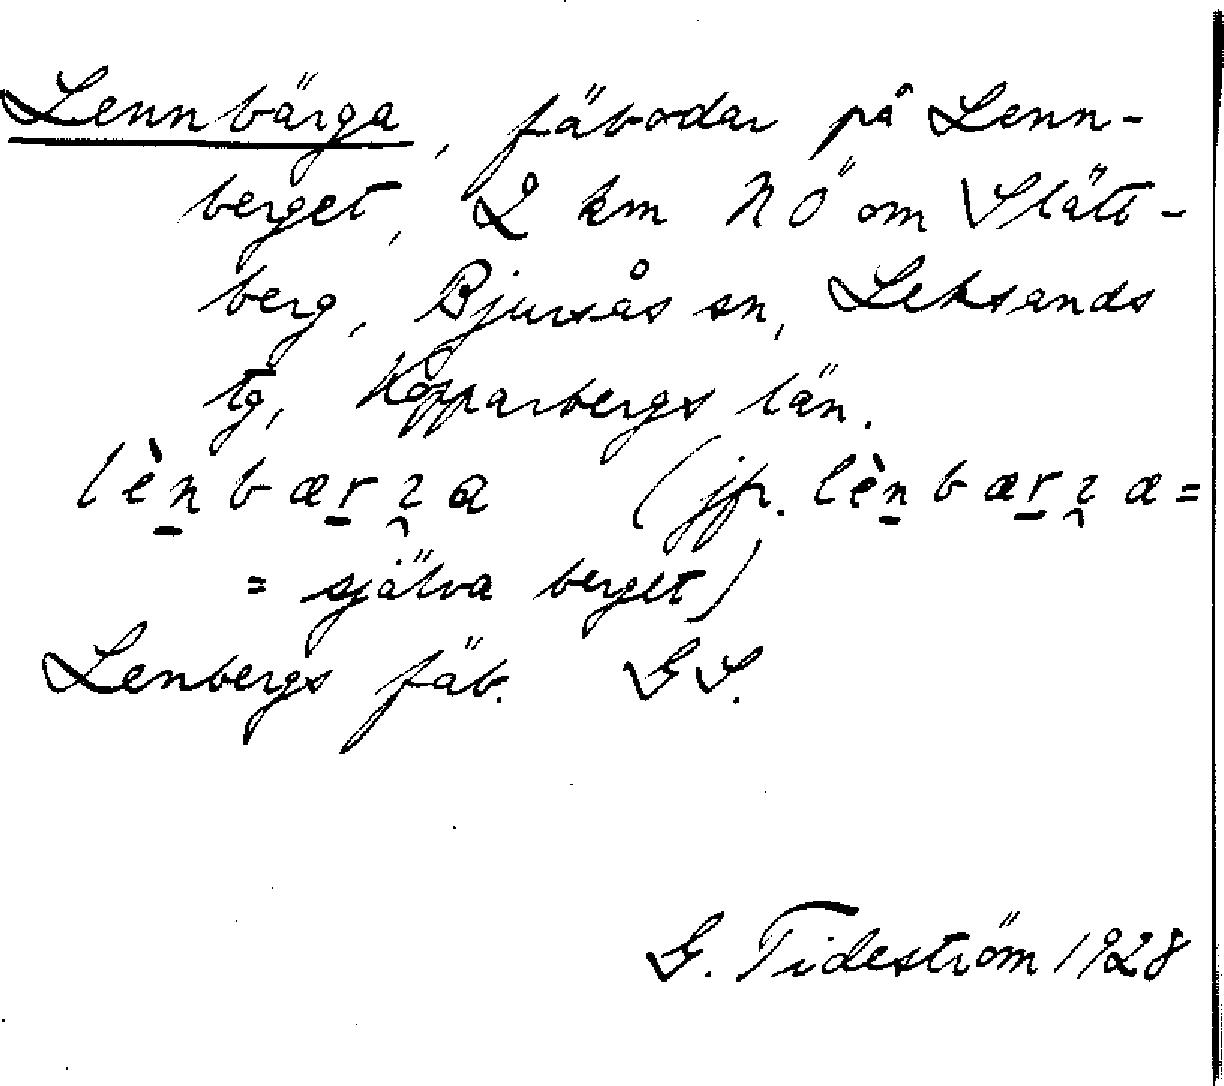 Lennbärga, fäbodar på Lenn-
berget, 2 km NÖ om Slätt-
berg, Bjursås sn, Leksands
tg, Kopparbergs län.
lènbærɀa (jfr. lènbærɀæ =
= själva berget)
Lenbergs fäb. GS.
G. Tideström 1928